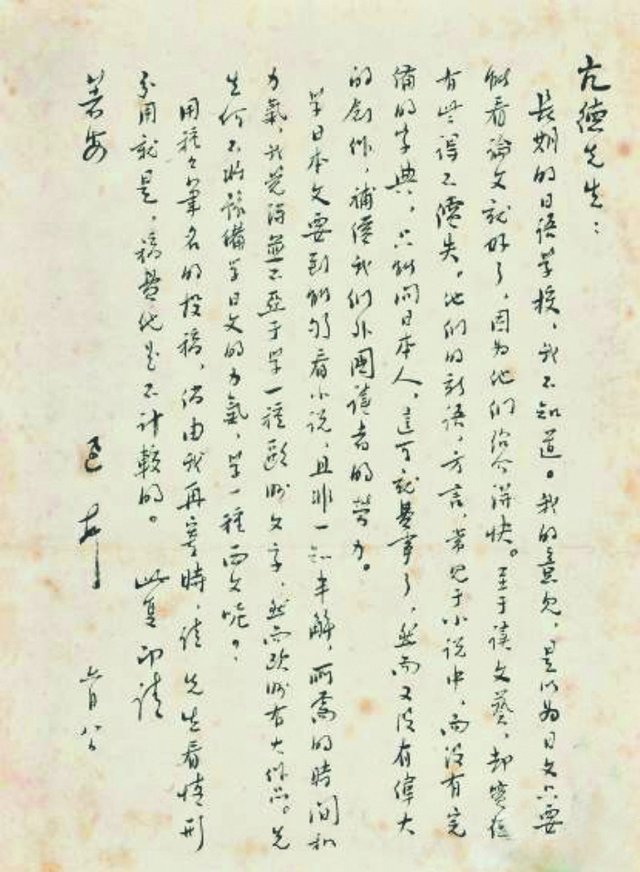 亢德先生：
长期的日语学校，我不知道。我的意见，是以为日文只要
能看论文就好了，因为他们绍介得快。至于读文艺，却实在
有些得不偿失。他们的新语，方言，常见于小说中，而没有完
备的字典，只能问日本人，这可就费事了，然而又没有伟大
的创作，补偿我们外国读者的劳力。
学日本文要到能够看小说，且非一知半解，所需的时间和
力气，我觉得并不亚于学一种欧洲文字，然而欧洲有大作品。先
生何不将豫备学日文的力气，学一种西文呢？
用种々笔名的投稿，倘由我再寄时，请 先生看情形
分用就是，稿费他是不计较的。 此复即请
著安
迅 上 六月八